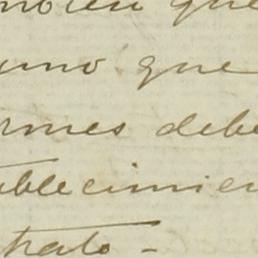 que
uno que
rmes debe
tablecimien
trato -